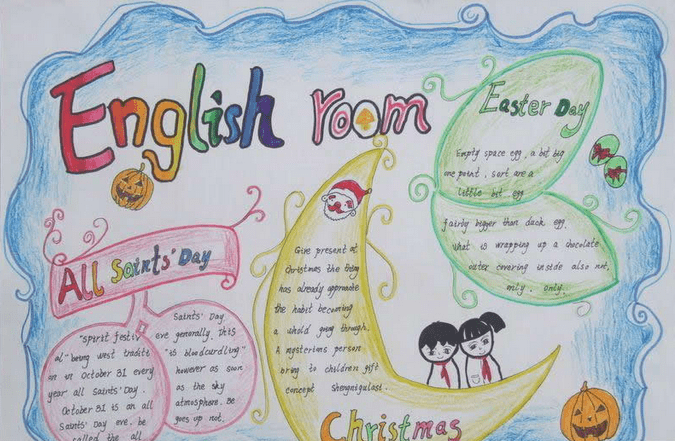 English room
Easter Day
Empty space egg, a bit big
one point, sort are a
little bit egg
fairly bigger than duck egg.
What is wrapping up a chocolate
outer covering inside also not,
only. only.
All Saints' Day
"Spirit festiv
al" being west traditi
on in October 31 every
year all Saints' Day.
October 31 is an all
Saints' Day eve. be
called the all
Saints' Day
eve generally. This
"is bloodcurdling"
however as soon
as the sky
atmosphere. Be
goes up not.
Give present at
Christmas the thing
has already approate
the habit becoming
a whold going through.
A mysterious person
bring to children gift
concept Shengnigulast.
Christmas